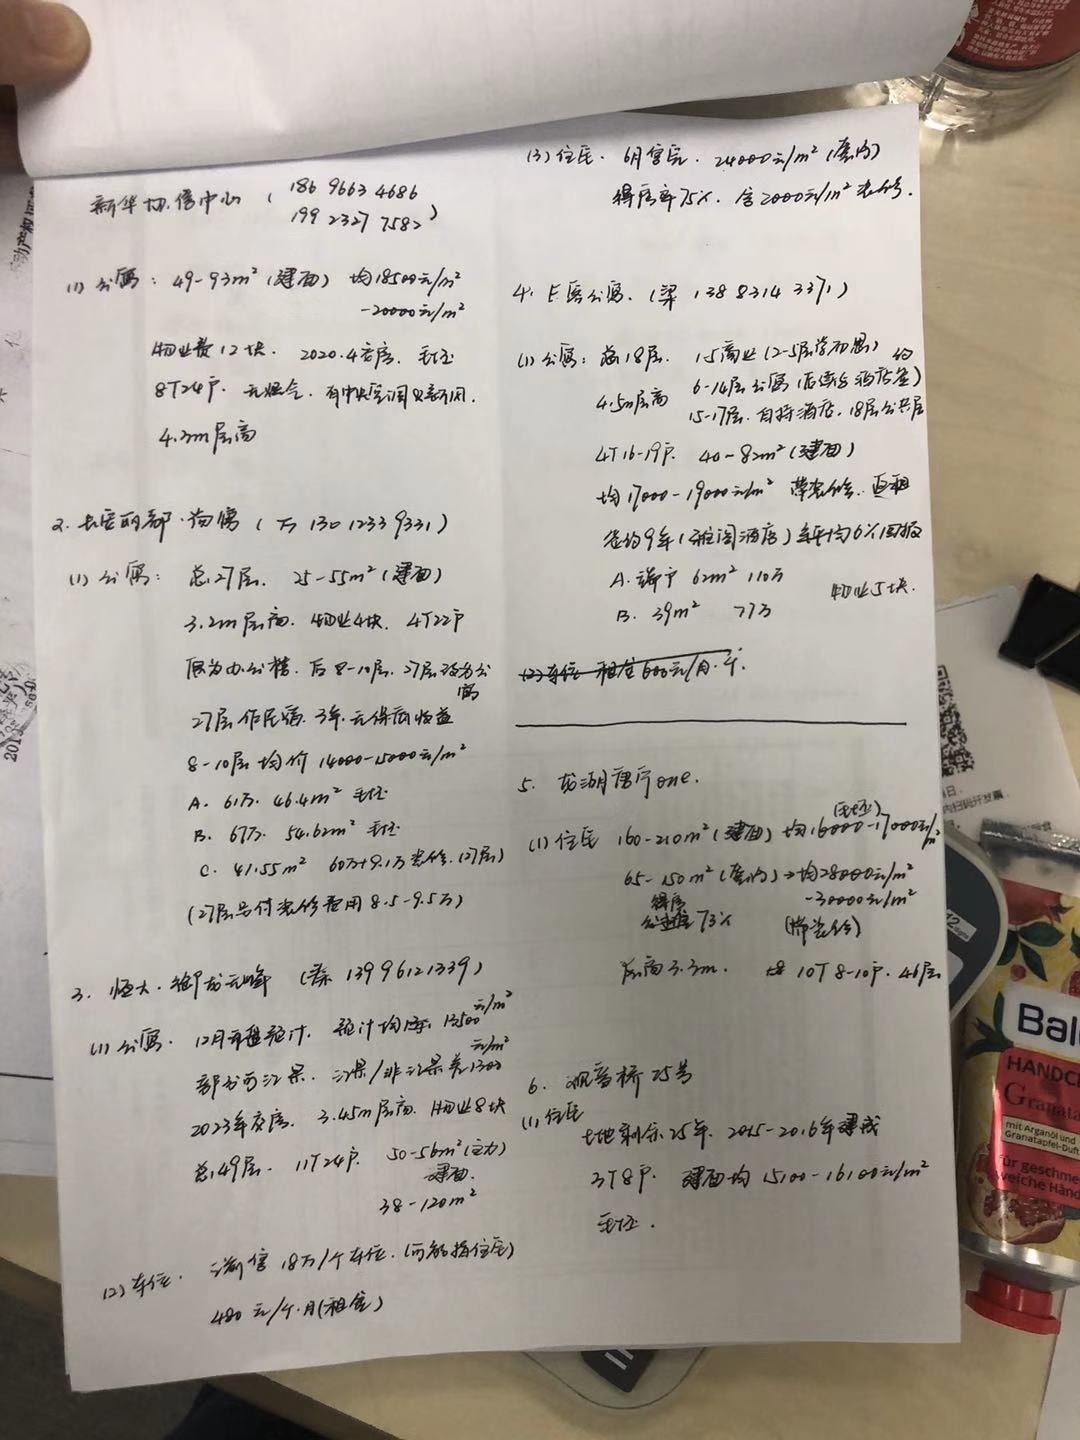 新华
售中心 (186 9663 4686
199 2327 7582)
(1) 公寓: 49-93m² (建面) 均18500元/m²
-20000元/m²
物业费12块. 2020.4交房. 毛坯
8T24户. 无燃气. 有中央空调
层高
2.
(万 130 1233 9331)
(1) 公寓: 总27层. 25-55m² (建面)
3.2m层高. 物业4块. 4T22户
原为办公楼. 后8-10层. 27层改为公
寓
27层作民宿. 3年. 无保底收益
8-10层均价 14000-15000元/m²
A. 61万. 46.4m² 毛坯
B. 67万. 54.62m² 毛坯
C. 41.55m² 60万+9.1万装修. (27层)
(27层另付装修费用 8.5-9.5万)
3. 恒大·御龙天峰 (
13996121339)
(1) 公寓. 12月开盘预计. 预计均
13500元/m²
部分可江景. 江景/非江景差1300元/m²
2023年交房. 3.45m层高. 物业8块
总49层. 11T24户. 50-56m² (主力)
建面.
38-120m²
(2) 车位.
售 18万/个车位. (可能指住宅)
480元/个·月(租金)
(3) 住宅. 6月售完. 24000元/m² (套内)
得房率75%. 含2000元/m²装修.
4.
公寓. (梁 138 8314 3371)
(1) 公寓: 总18层. 1-5商业 (2-5层
4.5m层高 6-14层公寓
15-17层. 自持酒店. 18层公共层
4T16-19户. 40-82m² (建面)
均17000-19000元/m² 带装修. 返租
签约9年 (雅阁酒店) 年均6%回报
A. 端户 62m² 110万
B. 39m² 77万
物业5块.
(2) 车位 租金600元/月·个.
5. 龙湖唐宁one.
(毛坯)
(1) 住宅 160-210m² (建面) 均16000-17000元/m²
65-150m² (套内) → 均28000元/m²
-30000元/m²
得房
73%
(带装修)
层高3.3m. 10T 8-10户. 46层
6. 观音桥25号
(1) 住宅
土地剩余25年. 2015-2016年建成
3T8户. 建面均 15100-16100元/m²
毛坯.
Bal
HANDCR
Granata
mit Arganöl und
Granatapfel-Duft
für geschme
weiche Händ